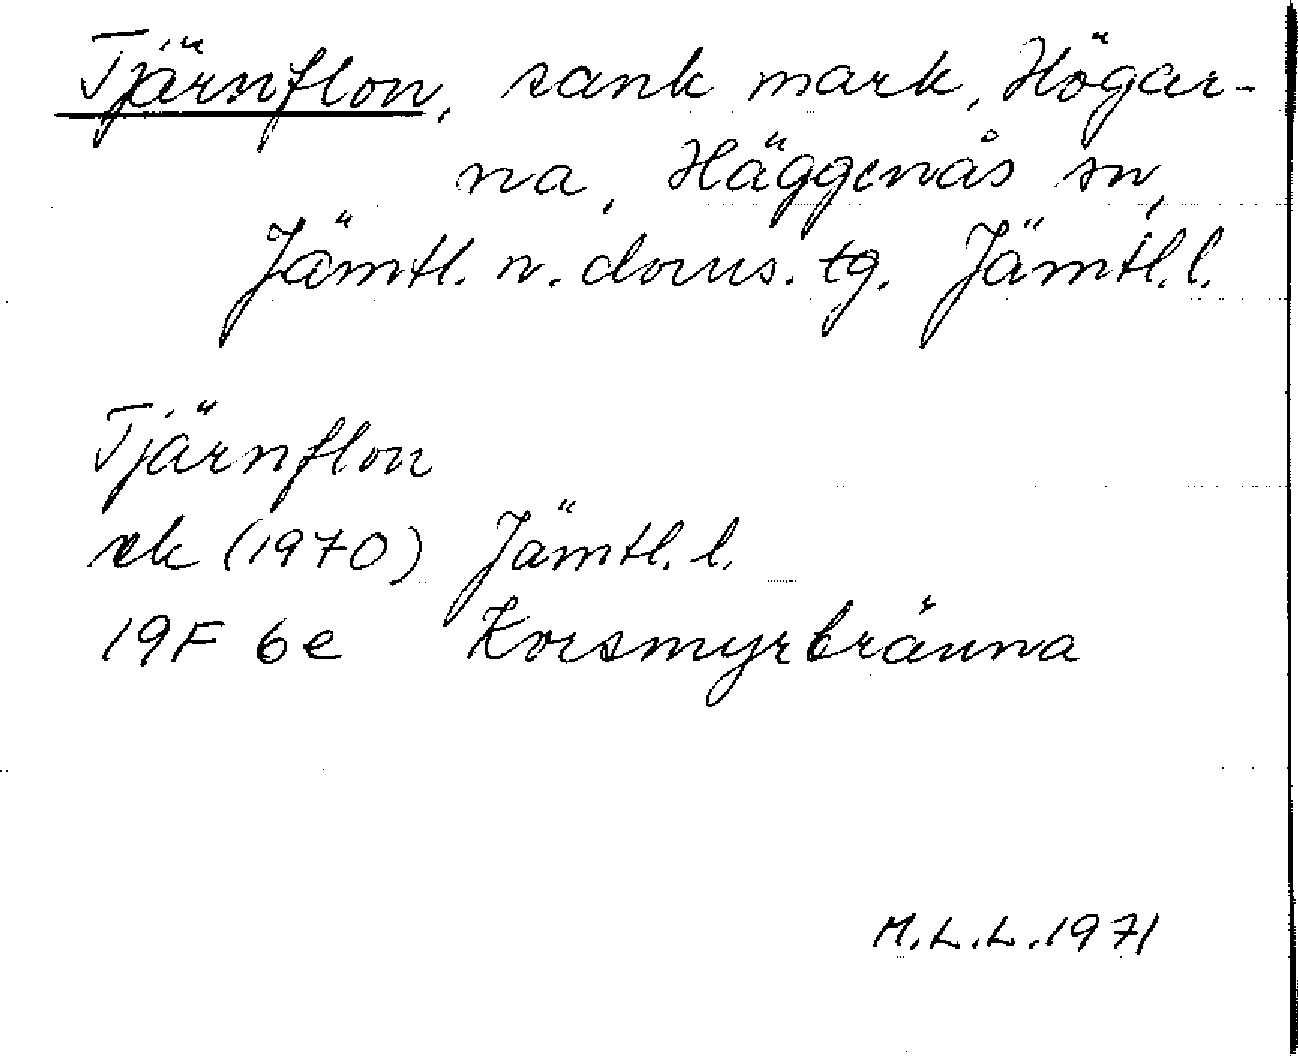 Tjärnflon, sank mark, Högar-
na, Häggenås sn,
Jämtl. n. doms. tg. Jämtl. l.
Tjärnflon
rek (1970) Jämtl. l.
19F 6e Korsmyrbränna
M.L.L. 1971